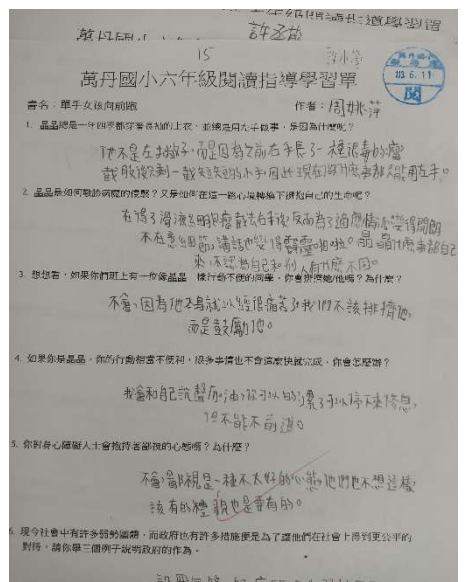 許孟敏
15
萬丹國小六年級閱讀指導學習單
113.6.11
閱
書名：單手女孩向前跑
作者：周姚萍
1. 晶晶總是一年四季都穿著長袖的上衣，並總是用左手做事，是因為什麼呢？
他不是左撇子，而是因為之前右手長了一種很毒的瘤
截肢後只剩一截短短的小手因此現在做什麼事都只能用左手。
2. 晶晶是如何戰勝病魔的侵襲？又是如何在這一路心境轉換下擁抱自己的生命呢？
在得了滑液細胞瘤截去右手後，反而為了適應情況變得開朗
不在意細節，講話也變得霹靂啪啦。晶晶什麼事都自己
來，不認為自己和別人有什麼不同。
3. 想想看，如果你們班上有一位像晶晶一樣行動不便的同學，你會排擠她/他嗎？為什麼？
不會，因為他本身就以經很痛苦了我們不該排擠他，
而是鼓勵他。
4. 如果你是晶晶，你的行動相當不便利，很多事情也不會這麼快就完成，你會怎麼辦？
我會和自己說聲加油，你可以的，累了可以停下來休息，
但不能不前進。
5. 你對身心障礙人士會抱持著鄙視的心態嗎？為什麼？
不會，鄙視是一種不太好的心態，他們也不想這樣，
該有的禮貌也是要有的。
6. 現今社會中有許多弱勢議題，而政府也有許多措施便是為了讓他們在社會上得到更公平的
對待，請你舉三個例子說明政府的作為。